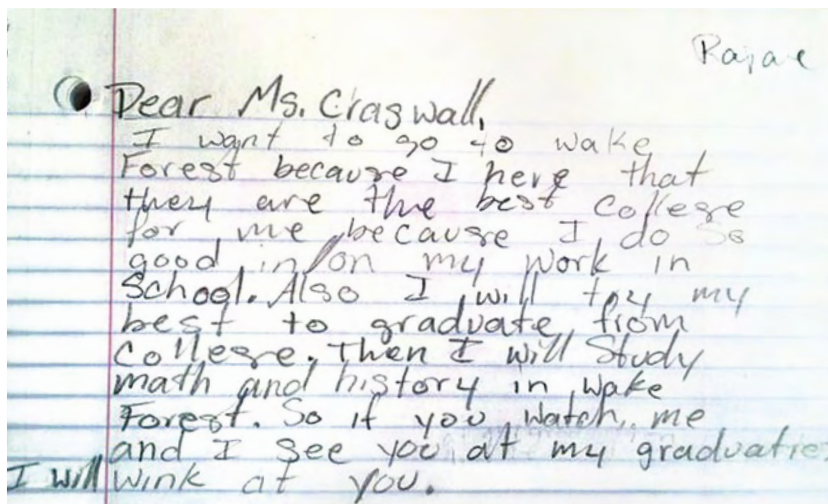 Rajae
Dear Ms. Craswall,
I want to go to wake
Forest because I here that
they are the best college
for me because I do so
good in/on my work in
School. Also I will try my
best to graduate from
college. Then I will Study
math and history in wake
Forest. So if you watch me
and I see you at my graduation
I will wink at you.